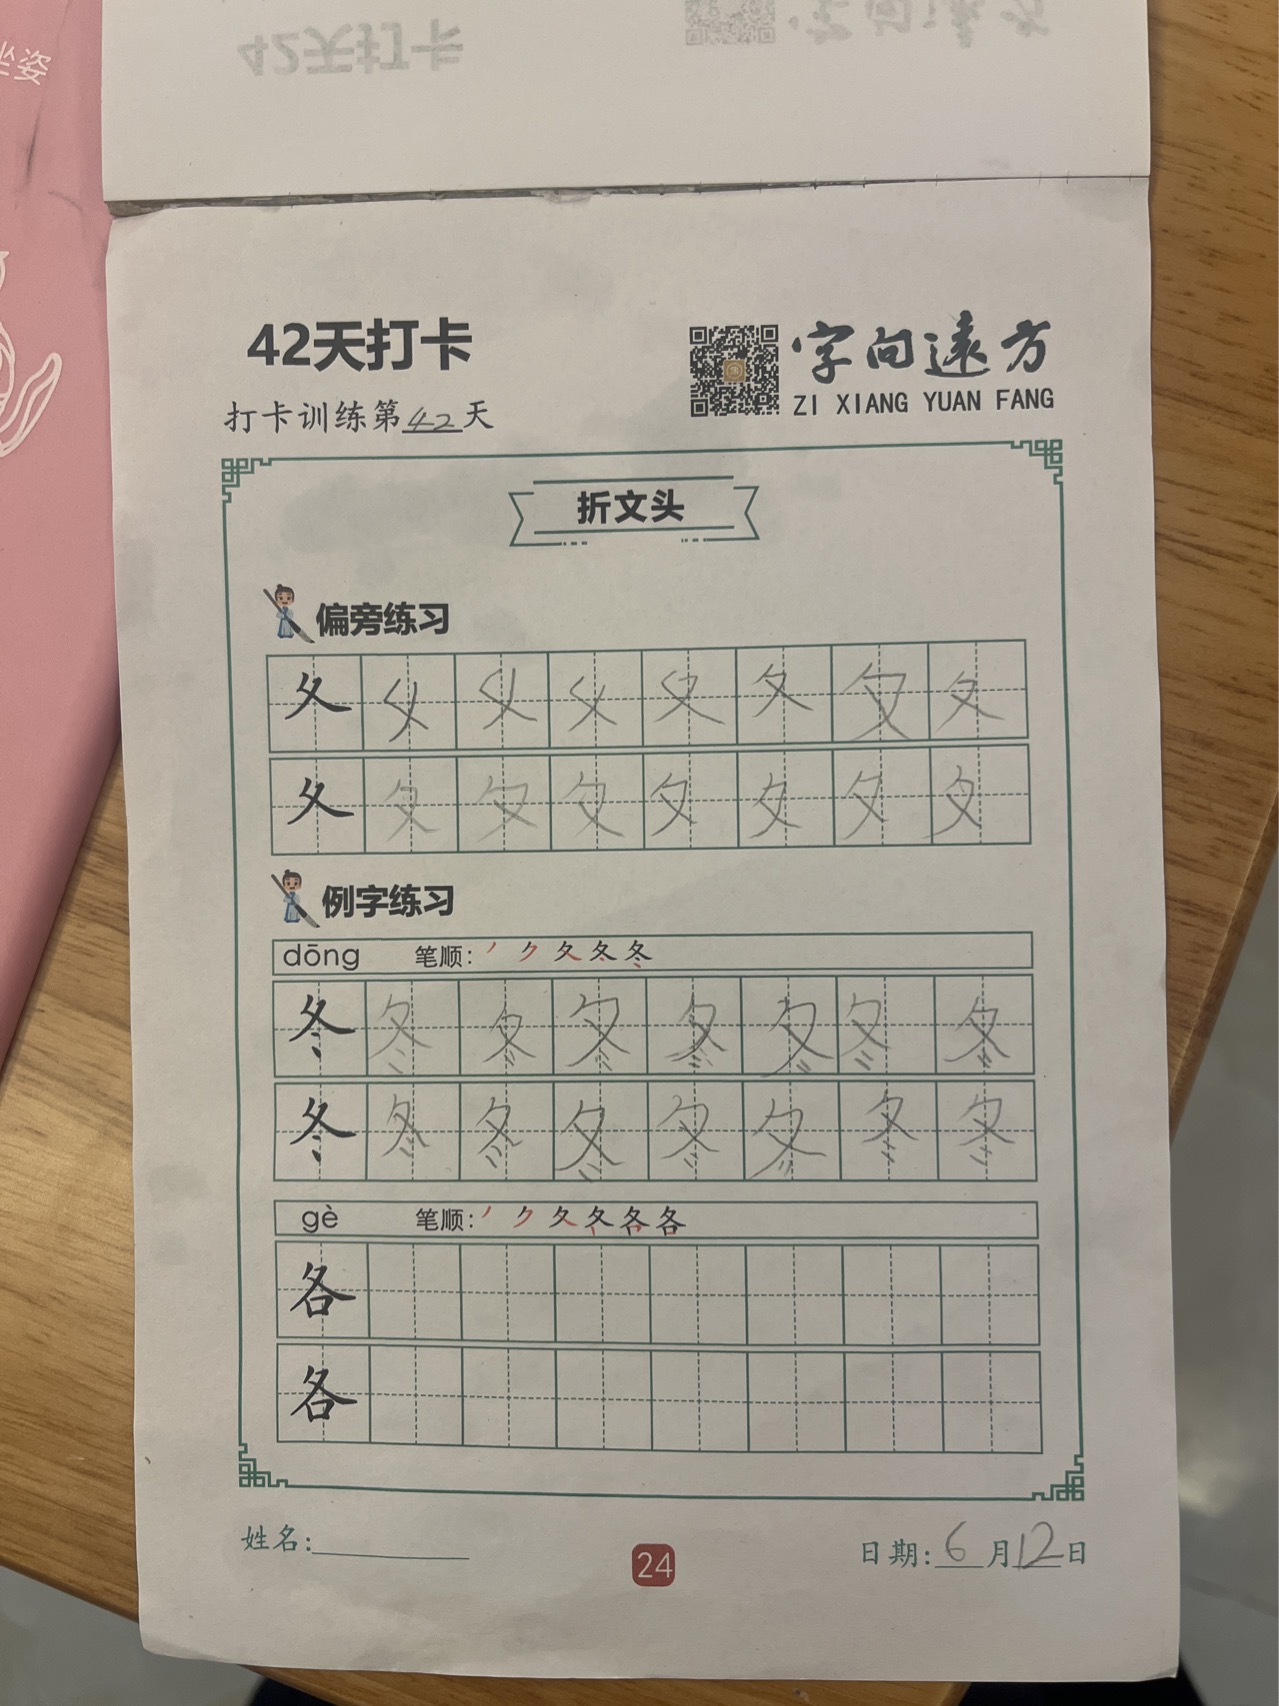 坐姿
42天打卡
字向遠方
42天打卡
字向遠方
ZI XIANG YUAN FANG
打卡训练第42天
折文头
偏旁练习
夂 夂 夂 夂 夂 夂 夂 夂
夂 夂 夂 夂 夂 夂 夂 夂
例字练习
dōng 笔顺: 丿 ク 夂 冬 冬
冬 冬 冬 冬 冬 冬 冬 冬
冬 冬 冬 冬 冬 冬 冬 冬
gè 笔顺: 丿 ク 夂 各 各 各
各
各
姓名:
24
日期: 6月12日